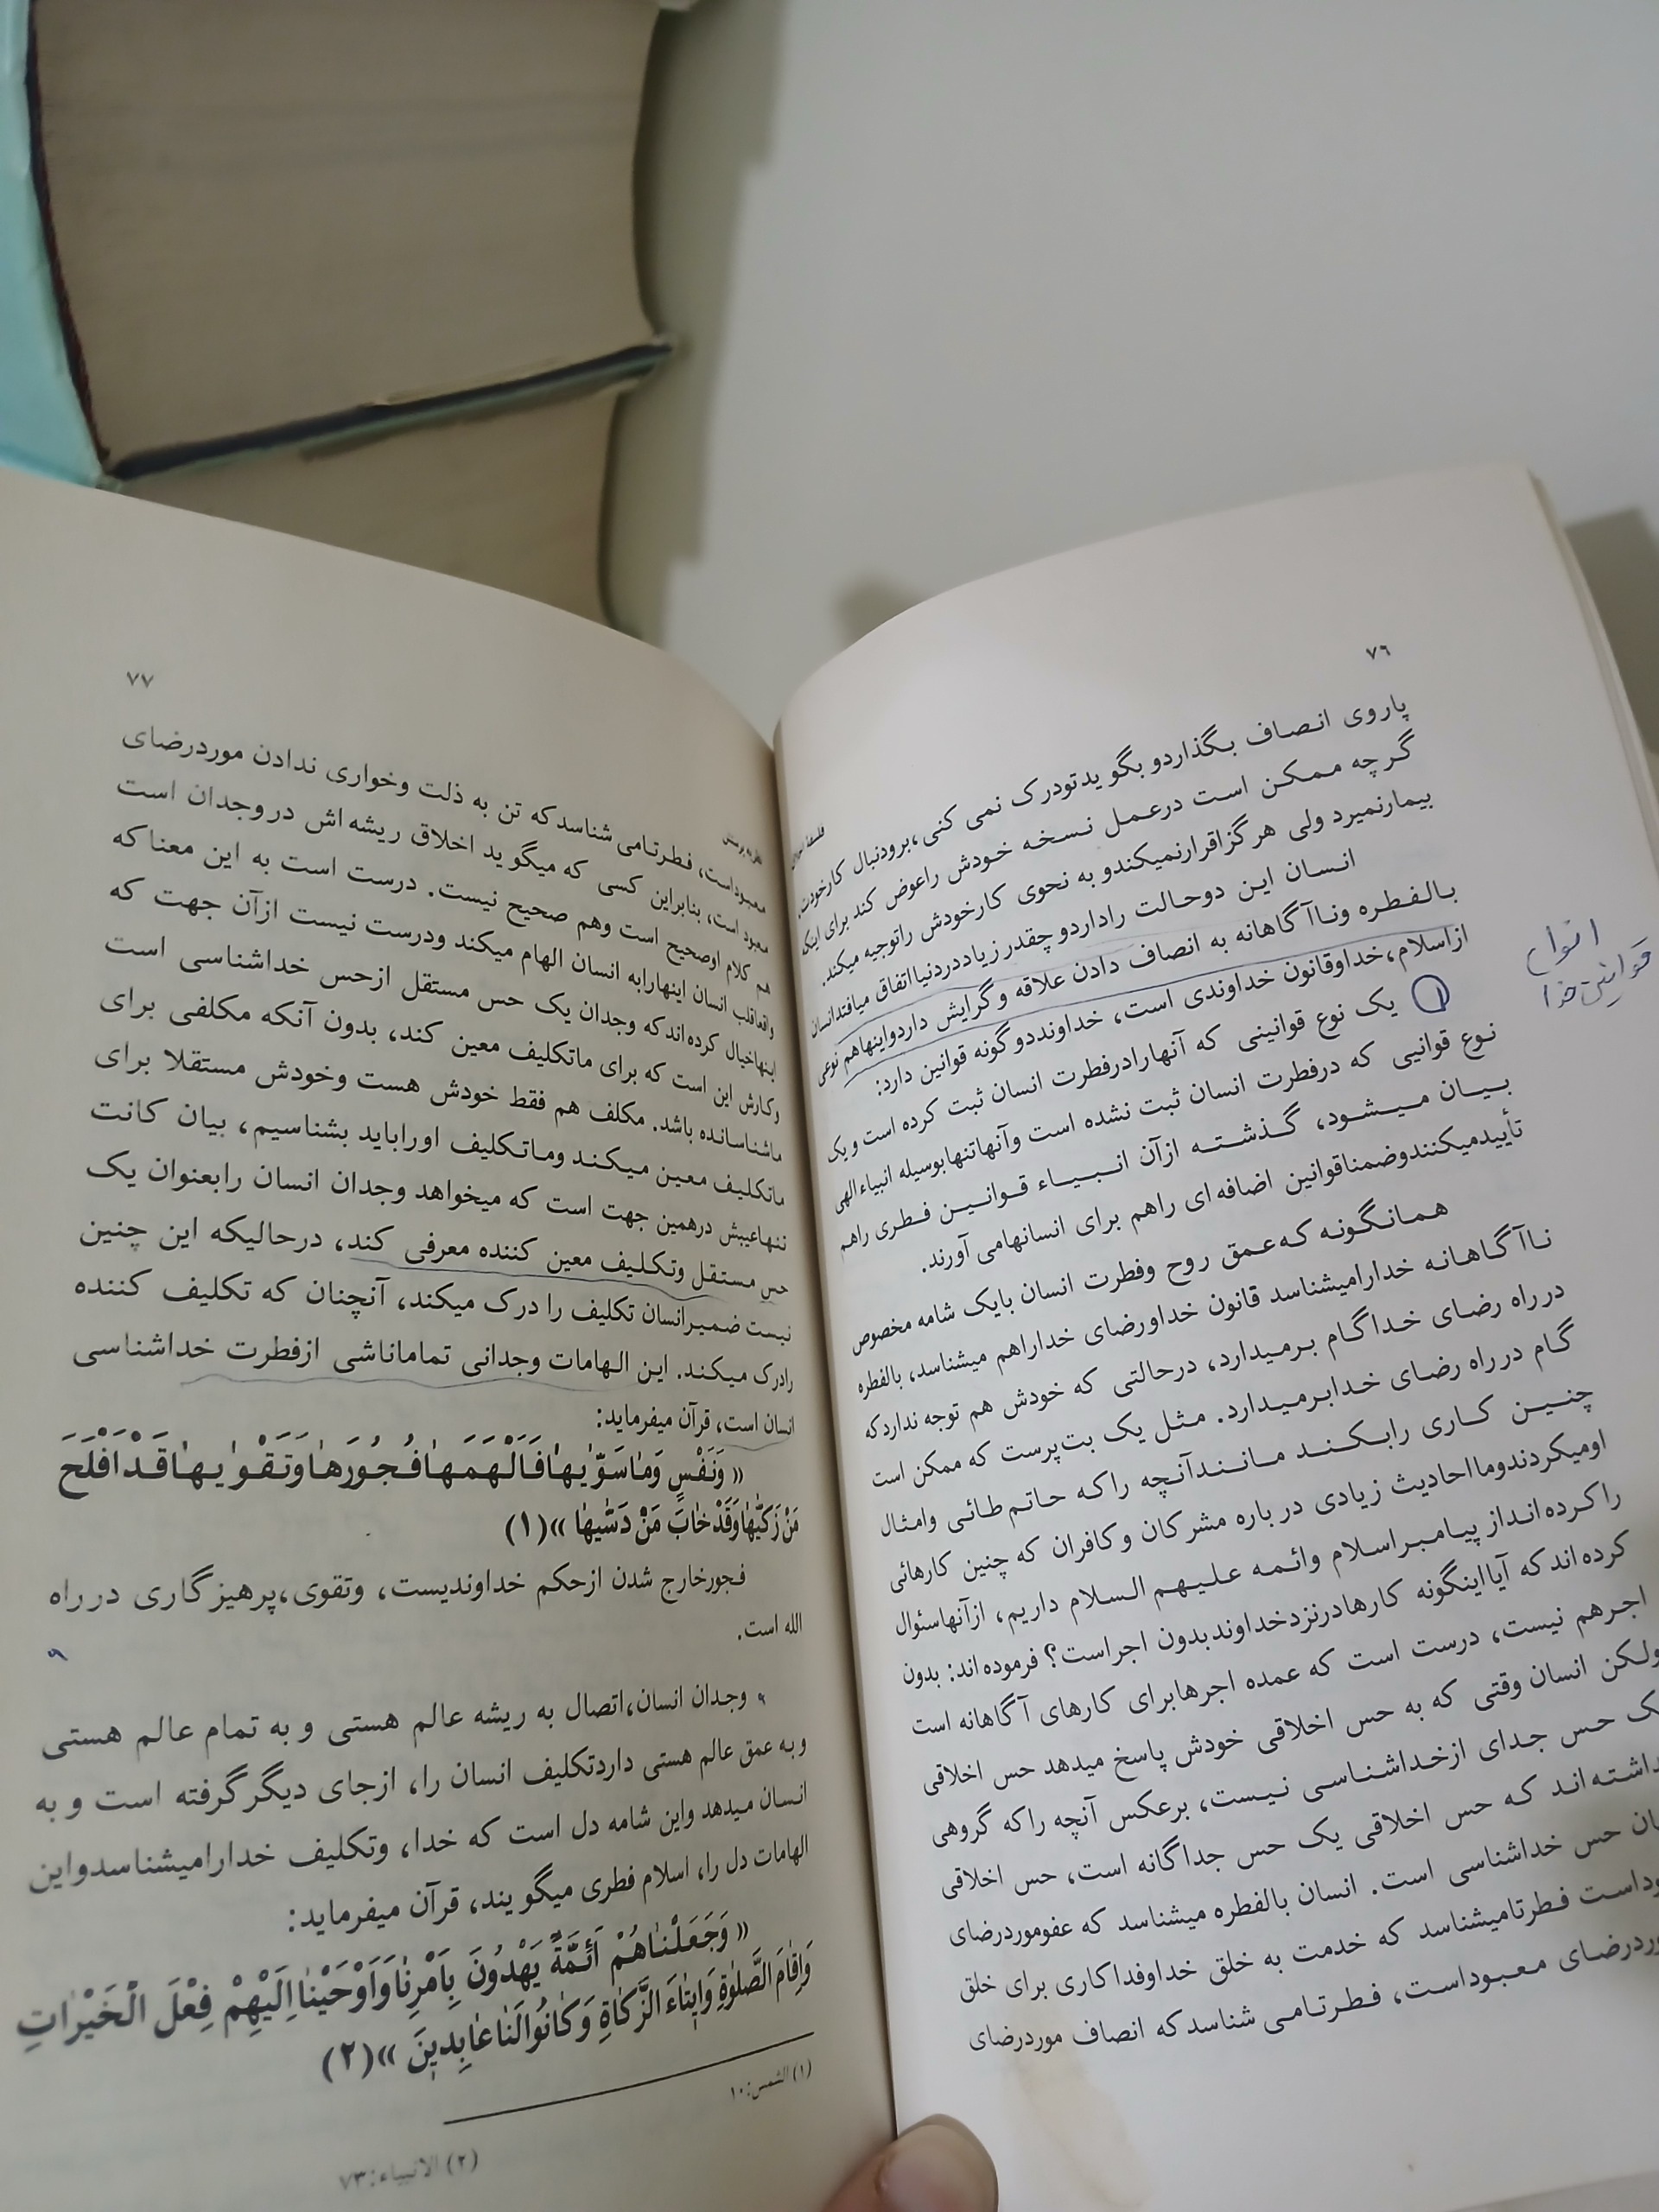 ۷۶
پاروی انصاف بگذاردو بگویدتودرک نمی کنی،برودنبال کارخودت.
گرچه ممکن است درعمل نسخه خودش راعوض کند برای اینکه
بیمارنمیرد ولی هرگزاقرارنمیکندو به نحوی کارخودش راتوجیه میکند.
انسان این دوحالت راداردو چقدرزیاددردنیااتفاق میافتدانسان
بالفطره وناآگاهانه به انصاف دادن علاقه وگرایش داردواینهاهم نوعی
ازاسلام،خداوقانون خداوندی است، خداونددوگونه قوانین دارد:
انواع
قوانین خدا
۱ یک نوع قوانینی که آنهارادرفطرت انسان ثبت کرده است ویک
نوع قوانیی که درفطرت انسان ثبت نشده است وآنهاتنهابوسیله انبیاءالهی
بیان میشود، گذشته ازآن انبیاء قوانین فطری راهم
تأییدمیکنندوضمناقوانین اضافه ای راهم برای انسانهامی آورند.
همانگونه که عمق روح وفطرت انسان بایک شامه مخصوص
ناآگاهانه خدارامیشناسد قانون خداورضای خداراهم میشناسد، بالفطره
درراه رضای خداگام برمیدارد، درحالتی که خودش هم توجه نداردکه
گام درراه رضای خدابرمیدارد. مثل یک بت پرست که ممکن است
چنین کاری رابکند مانندآنچه راکه حاتم طائی وامثال
اومیکردندومااحادیث زیادی درباره مشرکان وکافران که چنین کارهائی
راکرده انداز پیامبراسلام وائمه علیهم السلام داریم، ازآنهاسئوال
کرده اندکه آیااینگونه کارهادرنزدخداوندبدون اجراست؟ فرموده اند: بدون
اجرهم نیست، درست است که عمده اجرهابرای کارهای آگاهانه است
ولکن انسان وقتی که به حس اخلاقی خودش پاسخ میدهد حس اخلاقی
حس جدای ازخداشناسی نیست، برعکس آنچه راکه گروهی
که حس اخلاقی یک حس جداگانه است، حس اخلاقی
حس خداشناسی است. انسان بالفطره میشناسد که عفوموردرضای
فطرتامیشناسد که خدمت به خلق خداوفداکاری برای خلق
معبوداست، فطرتامی شناسدکه انصاف موردرضای
۷۷
معبوداست، فطرتامی شناسدکه تن به ذلت وخواری ندادن موردرضای
معبود است، بنابراین کسی که میگوید اخلاق ریشه اش دروجدان است
هم کلام اوصحیح است وهم صحیح نیست. درست است به این معناکه
واقعاقلب انسان اینهارابه انسان الهام میکند ودرست نیست ازآن جهت که
اینهاخیال کرده اندکه وجدان یک حس مستقل ازحس خداشناسی است
وکارش این است که برای ماتکلیف معین کند، بدون آنکه مکلفی برای
ماشناسانده باشد. مکلف هم فقط خودش هست وخودش مستقلا برای
ماتکلیف معین میکند وماتکلیف اوراباید بشناسیم، بیان کانت
تنهاعیبش درهمین جهت است که میخواهد وجدان انسان رابعنوان یک
حس مستقل وتکلیف معین کننده معرفی کند، درحالیکه این چنین
نیست ضمیرانسان تکلیف را درک میکند، آنچنان که تکلیف کننده
رادرک میکند. این الهامات وجدانی تماماناشی ازفطرت خداشناسی
انسان است، قرآن میفرماید:
« وَنَفْسٍ وَمٰاسَوّٰیهٰافَاَلْهَمَهٰافُجُورَهٰاوَتَقْوٰیهٰاقَدْاَفْلَحَ
مَنْ زَکّٰیهٰاوَقَدْخٰابَ مَنْ دَسّٰیهٰا »(۱)
فجورخارج شدن ازحکم خداوندیست، وتقوی،پرهیزگاری درراه
الله است.
وجدان انسان،اتصال به ریشه عالم هستی و به تمام عالم هستی
وبه عمق عالم هستی داردتکلیف انسان را، ازجای دیگرگرفته است وبه
انسان میدهد واین شامه دل است که خدا، وتکلیف خدارامیشناسدواین
الهامات دل را، اسلام فطری میگویند، قرآن میفرماید:
« وَجَعَلْنٰاهُمْ اَئِمَّةً یَهْدُونَ بِاَمْرِنٰاوَاَوْحَیْنٰااِلَیْهِمْ فِعْلَ الْخَیْرٰاتِ
وَاِقٰامَ الصَّلوٰةِ وَایتٰاءَ الزَّکٰاةِ وَکٰانُوالَنٰاعٰابِدینَ »(۲)
(۱) الشمس:۱۰
(۲) الانبیاء:۷۳